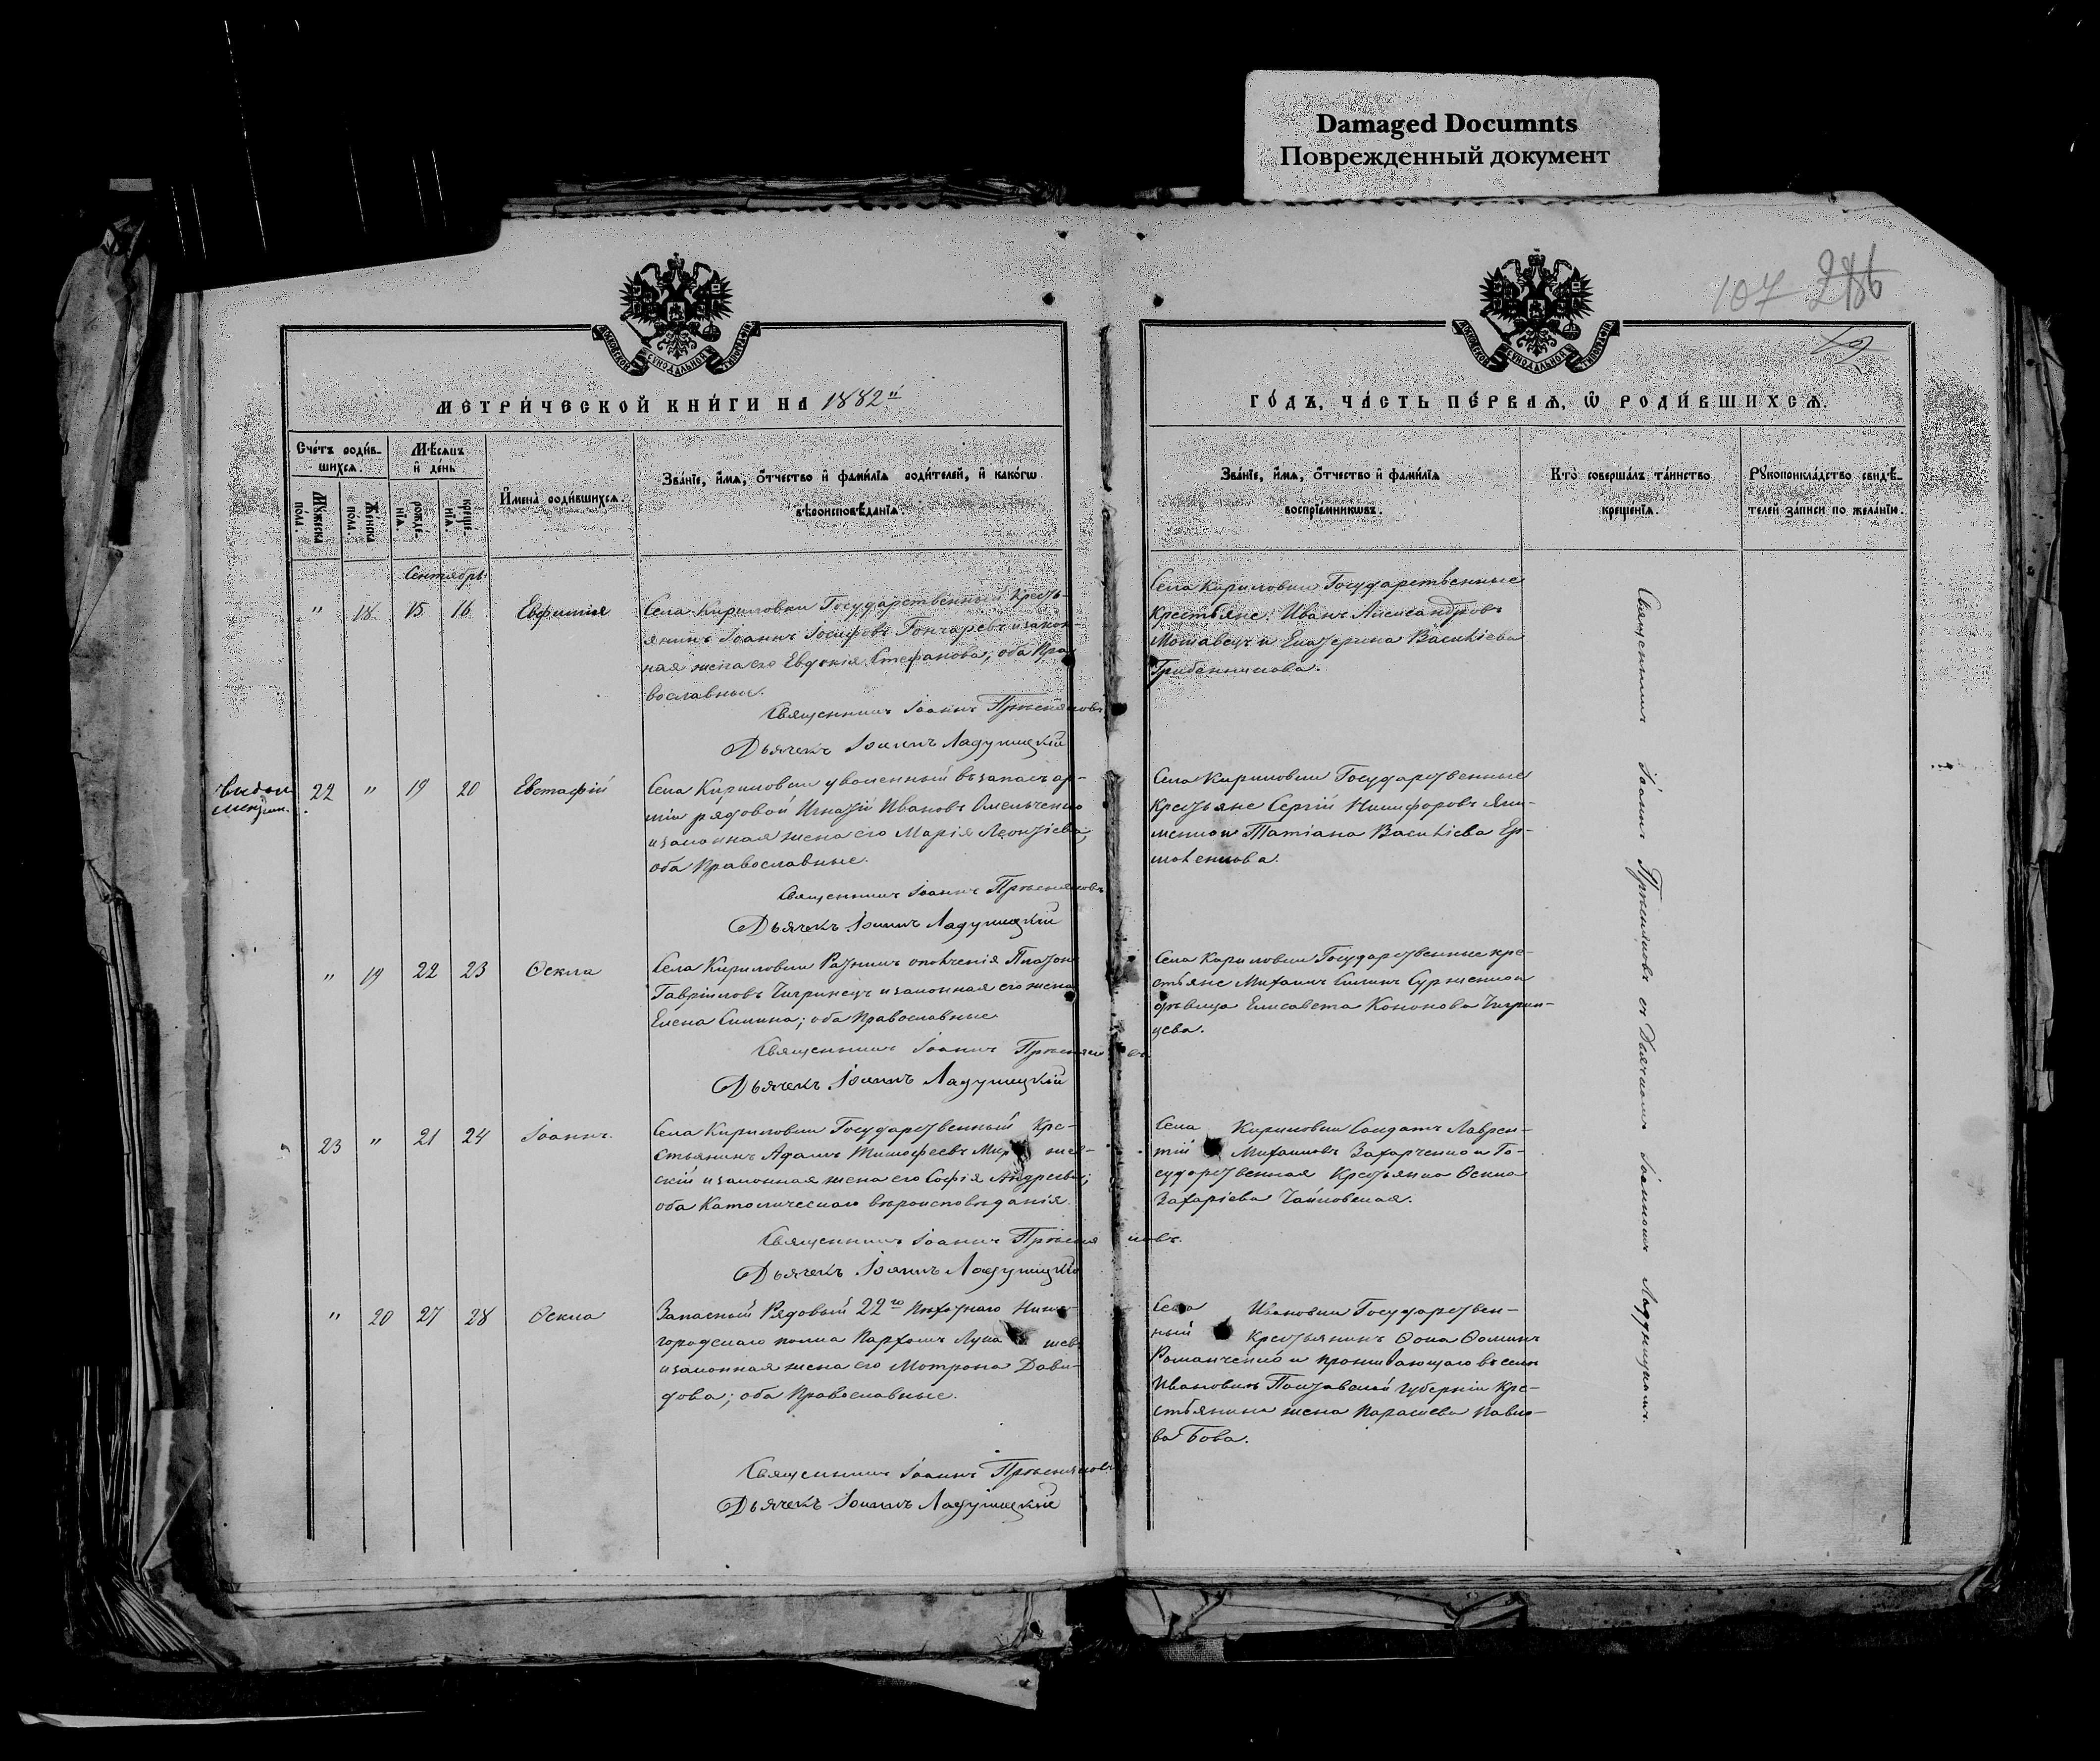 Damaged Documnts
Поврежденный документ
107 286
МОСКОВСКОЙ СѴНОДАЛЬНОЙ ТИПОГРАФІИ
МОСКОВСКОЙ СѴНОДАЛЬНОЙ ТИПОГРАФІИ
МЕТРИ́ЧЕСКОЙ КНИ́ГИ НА 1882й
ГО́ДЪ, ЧА́СТЬ ПЕ́РВАѦ, Ѡ РОДИ́ВШИХСѦ.
Сче́тъ роди́в-
шихсѧ.
Мѣ́сѧцъ
и҆ де́нь
Мꙋ́жеска по́ла.
Же́нска по́ла.
рожде́-нїѧ.
креще́-нїѧ.
И҆мена̀ роди́вшихсѧ.
Зва́нїе, и҆́мѧ, ѻ҆́тчество и҆ фами́лїѧ роди́телей, и҆ како́гѡ
вѣроисповѣ́данїѧ.
Зва́нїе, и҆́мѧ, ѻ҆́тчество и҆ фами́лїѧ
воспрїе́мникѡвъ.
Кто̀ соверша́лъ та́инство
креще́нїѧ.
Рꙋкоприкла́дство свидѣ́-
телей за́писи по жела́нїю.
Сентябрь
" 18 15 16 Евфимія
Села Кириловки Государственный кресть-
янинъ Іоаннъ Іосифовъ Гончаревъ и закон-
ная жена его Евдокія Стефанова; оба Пра-
вославные.
Священникъ Іоаннъ Прѣсняковъ
Дьячекъ Іоаннъ Ладушецкій
Села Кириловки Государственные
Крестьяне: Иванъ Александровъ
Мотавецъ и Екатерина Васильева
Гребенникова.
22 " 19 20 Евстафій
Села Кириловки уволенный въ запасъ ар-
міи рядовой Игнатій Ивановъ Омельченко
и законная жена его Марія Леонтіева;
оба Православные.
Священникъ Іоаннъ Прѣсняковъ
Дьячекъ Іоаннъ Ладушецкій
Села Кириловки Государственные
крестьяне Сергій Никифоровъ Яки-
менко и Татіана Васильева Ер-
моленкова.
" 19 22 23 Ѳекла
Села Кириловки Ратникъ ополченія Платонъ
Гавріиловъ Чигринецъ и законная его жена
Елена Силина; оба Православные
Священникъ Іоаннъ Прѣсняковъ
Дьячекъ Іоаннъ Ладушецкій
Села Кириловки Государственные кре-
стьяне Михаилъ Силинъ Сурженко и
дѣвица Елисавета Кононова Чигрин-
цева.
23 " 21 24 Іоаннъ.
Села Кириловки Государственный Кре-
стьянинъ Адамъ Тимофеевъ
скій и законная жена его Софія Андреева;
оба Католическаго вѣроисповѣданія.
Священникъ Іоаннъ Прѣсняковъ.
Дьячекъ Іоаннъ Ладушецкій
Села Кириловки Солдатъ Лаврен-
тій Михаиловъ Захарченко и Го-
сударственная Крестьянка Ѳекла
Захаріева Чайковская.
" 20 27 28 Ѳекла
Запасный Рядовый 22го Пѣхотнаго Ниже-
городскаго полка Парфомъ
и законная жена его Мотрона Дави-
дова; оба Православные.
Священникъ Іоаннъ Прѣсняковъ
Дьячекъ Іоаннъ Ладушецкій
Села Ивановки Государствен-
ный Крестьянинъ Ѳома Ѳоминъ
Романченко и проживающаго въ селѣ
Ивановкѣ Полтавской губерніи кре-
стьянина жена Параскева Павло-
ва Бова.
Священникъ Іоаннъ Прѣсняковъ съ Дьячкомъ Іоанномъ Ладушецкимъ.